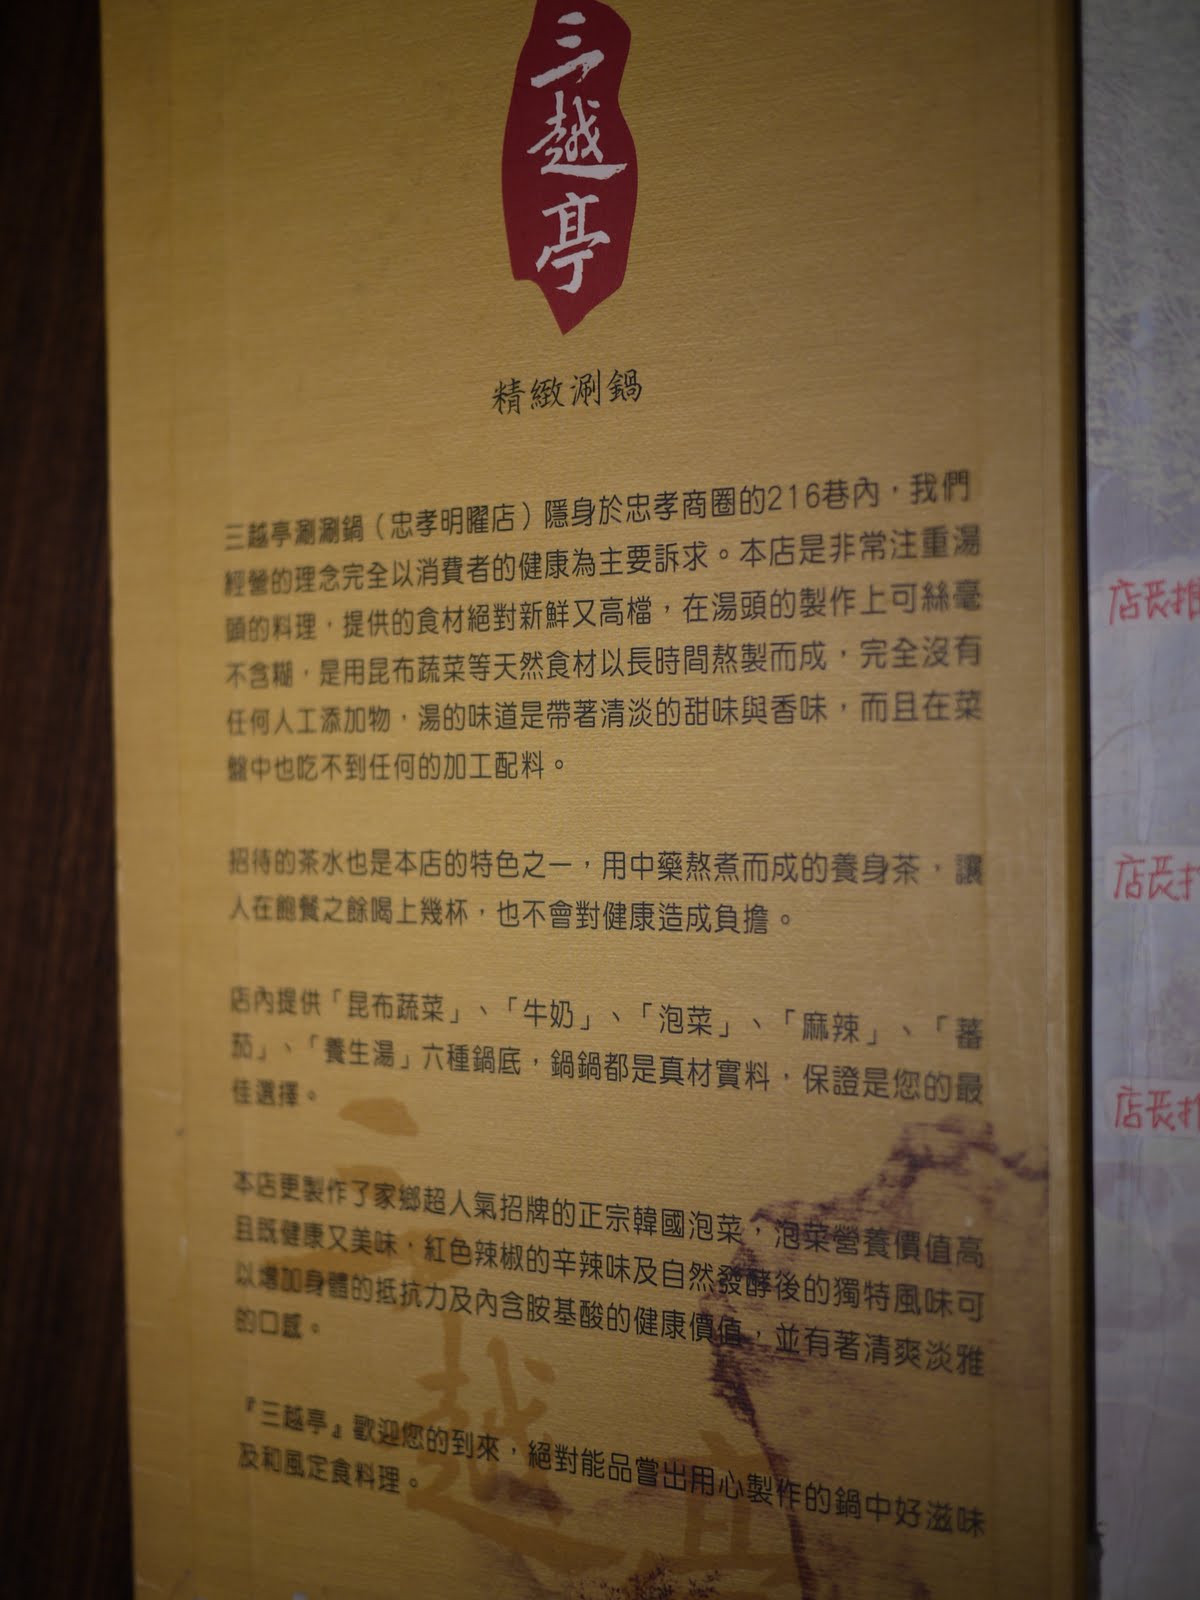 三越亭
精緻涮鍋
三越亭涮涮鍋（忠孝明曜店）隱身於忠孝商圈的216巷內，我們
經營的理念完全以消費者的健康為主要訴求。本店是非常注重湯
頭的料理，提供的食材絕對新鮮又高檔，在湯頭的製作上可絲毫
不含糊，是用昆布蔬菜等天然食材以長時間熬製而成，完全沒有
任何人工添加物，湯的味道是帶著清淡的甜味與香味，而且在菜
盤中也吃不到任何的加工配料。
招待的茶水也是本店的特色之一，用中藥熬煮而成的養身茶，讓
人在飽餐之餘喝上幾杯，也不會對健康造成負擔。
店內提供「昆布蔬菜」、「牛奶」、「泡菜」、「麻辣」、「蕃
茄」、「養生湯」六種鍋底，鍋鍋都是真材實料，保證是您的最
佳選擇。
本店更製作了家鄉超人氣招牌的正宗韓國泡菜，泡菜營養價值高
且既健康又美味，紅色辣椒的辛辣味及自然發酵後的獨特風味可
以增加身體的抵抗力及內含胺基酸的健康價值，並有著清爽淡雅
的口感。
『三越亭』歡迎您的到來，絕對能品嘗出用心製作的鍋中好滋味
及和風定食料理。
三越亭
店長推
店長
店長推